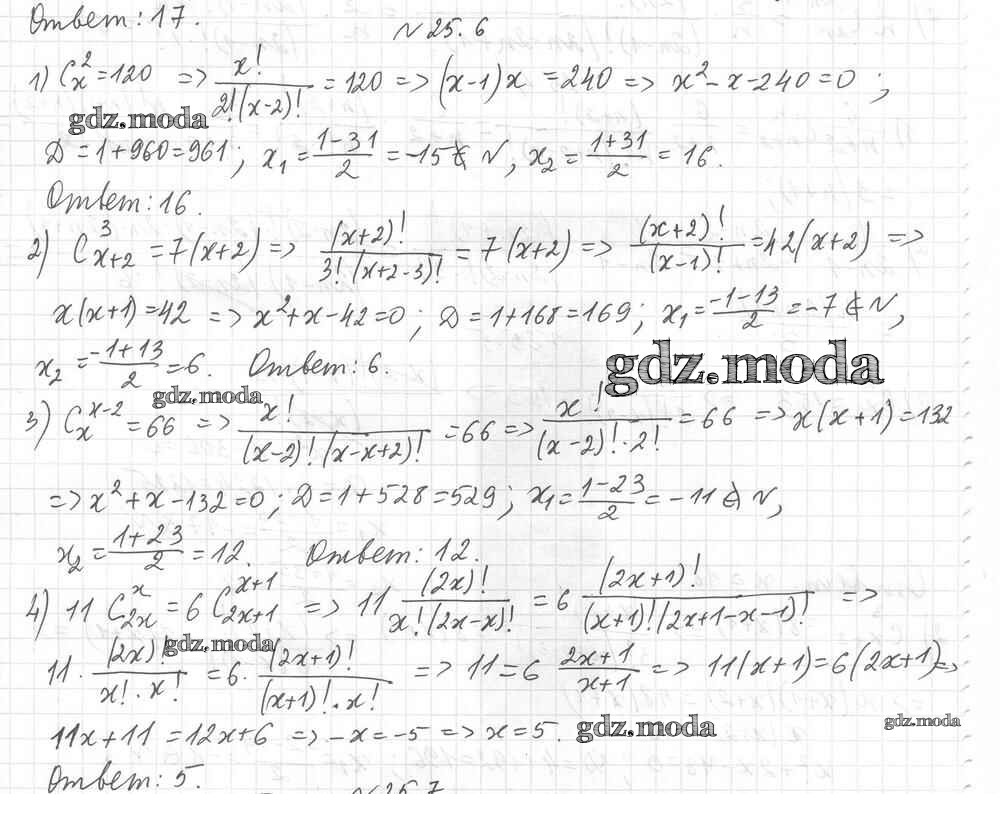 Ответ: 17.
№ 25.6
1) C_x^2 = 120 => x!/(2!(x-2)!) = 120 => (x-1)x = 240 => x^2 - x - 240 = 0 ;
gdz.moda
D = 1 + 960 = 961 ; x_1 = (1-31)/2 = -15 ∉ N, x_2 = (1+31)/2 = 16.
Ответ: 16.
2) C_{x+2}^3 = 7(x+2) => (x+2)!/(3!(x+2-3)!) = 7(x+2) => (x+2)!/(x-1)! = 42(x+2) =>
x(x+1) = 42 => x^2 + x - 42 = 0 ; D = 1 + 168 = 169 ; x_1 = (-1-13)/2 = -7 ∉ N,
gdz.moda
x_2 = (-1+13)/2 = 6. Ответ: 6.
gdz.moda
3) C_x^{x-2} = 66 => x!/((x-2)!(x-x+2)!) = 66 => x!/((x-2)!·2!) = 66 => x(x+1) = 132
=> x^2 + x - 132 = 0 ; D = 1 + 528 = 529 ; x_1 = (1-23)/2 = -11 ∉ N,
x_2 = (1+23)/2 = 12. Ответ: 12.
4) 11 C_{2x}^x = 6 C_{2x+1}^{x+1} => 11 (2x)!/(x!(2x-x)!) = 6 (2x+1)!/((x+1)!(2x+1-x-1)!) =>
gdz.moda
11 · (2x)!/(x!·x!) = 6 · (2x+1)!/((x+1)!·x!) => 11 = 6 (2x+1)/(x+1) => 11(x+1) = 6(2x+1) =>
11x + 11 = 12x + 6 => -x = -5 => x = 5.
gdz.moda
gdz.moda
Ответ: 5.
№ 25.7